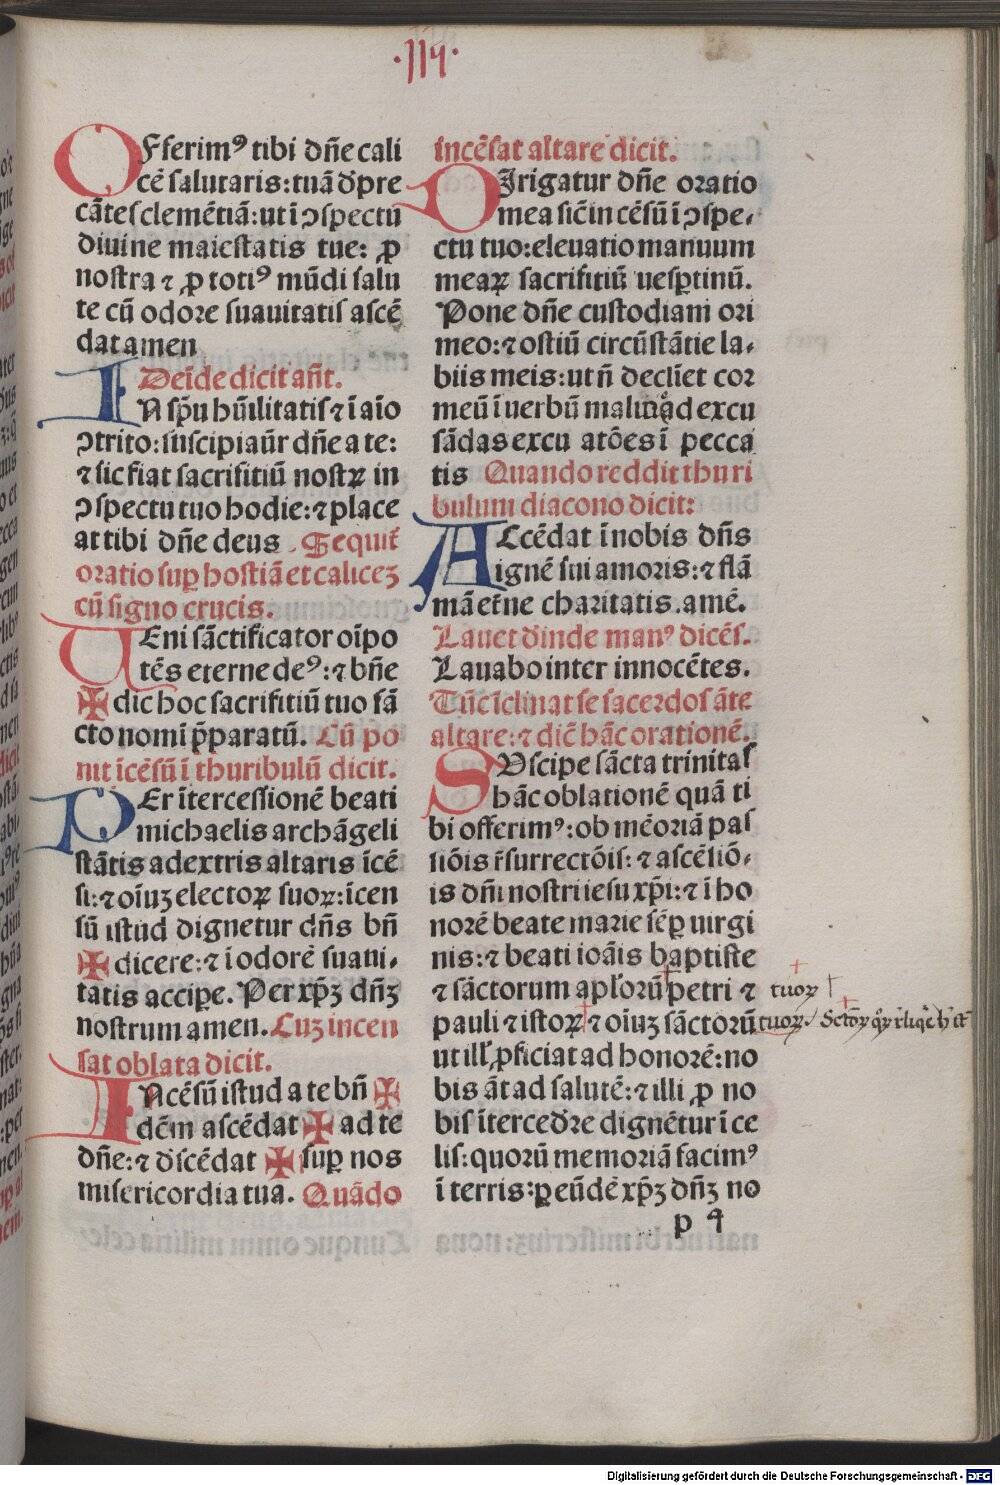 ·114·
OFferimꝰ tibi dn̄e cali
cē salutaris: tuā d̄pre
cātes clemētiā: ut ī ↄspectu
diuine maiestatis tue: ꝓ
nostra ⁊ ꝓ totiꝰ mūdi salu
te cū odore suauitatis ascē
dat amen
Deīde dicit an̄t.
IN sp̄u hūilitatis ⁊ ī aīo
ↄtrito: suscipiaūr dn̄e a te:
⁊ sic fiat sacrifitiū nostꝝ in
ↄspectu tuo hodie: ⁊ place
at tibi dn̄e deus . Sequit̄
oratio suꝑ hostiā et caliceꝫ
cū signo crucis.
UEni sāctificator oīpo
tēs eterne deꝰ: ⁊ bn̄e
✠ dic hoc sacrifitiū tuo sā
cto nomī p̄paratū. Cū po
nit īcēsū ī thuribulū dicit.
PEr ītercessionē beati
michaelis archāgeli
stātis a dextris altaris īcē
si: ⁊ oīuꝫ electoꝝ suoꝝ: īcen
sū istud dignetur dn̄s bn̄
✠ dicere: ⁊ ī odorē suaui-
tatis accipe. Per xp̄ꝫ dn̄ꝫ
nostrum amen. Cuꝫ incen
sat oblata dicit.
INcēsū istud a te bn̄ ✠
dcm̄ ascēdat ✠ ad te
dn̄e: ⁊ d̄scēdat ✠ suꝑ nos
misericordia tua. Quādo
incēsat altare dicit.
DIrigatur dn̄e oratio
mea sic̄ incēsū ī ↄspe-
ctu tuo: eleuatio manuum
meaꝝ sacrifitiū uesꝑtinū.
Pone dn̄e custodiam ori
meo: ⁊ ostiū circūstātie la-
biis meis: ut n̄ declīet cor
meū ī uerbū malū ad excu
sādas excu atōes ī pecca
tis Quando reddit thuri
bulum diacono dicit:
ACcēdat ī nobis dn̄s
ignē sui amoris: ⁊ flā
mā et̄ne charitatis. amē.
Lauet d̄inde manꝰ dicēs.
Lauabo inter innocētes.
Tūc īclinat se sacerdos āte
altare: ⁊ dic̄ hāc orationē.
SUscipe sācta trinitas
hāc oblationē quā ti
bi offerimꝰ: ob mēoriā pas
siōis r̄surrectōis: ⁊ ascēsiō-
is dn̄i nostri iesu xp̄i: ⁊ ī ho
norē beate marie sēꝑ uirgi
nis: ⁊ beati ioāis baptiste
⁊ sāctorum apl̄orū petri ⁊ tuoꝝ
pauli ⁊ istoꝝ ⁊ oīuꝫ sāctorū tuoꝝ.
ut ill̄ ꝓficiat ad honorē: no
bis āt ad salutē: ⁊ illi ꝓ no
bis ītercedr̄e dignētur ī ce
lis: quorū memoriā facimꝰ
ī terris: ꝑ eūdē xp̄ꝫ dn̄ꝫ no
p 4
Digitalisierung gefördert durch die Deutsche Forschungsgemeinschaft - DFG